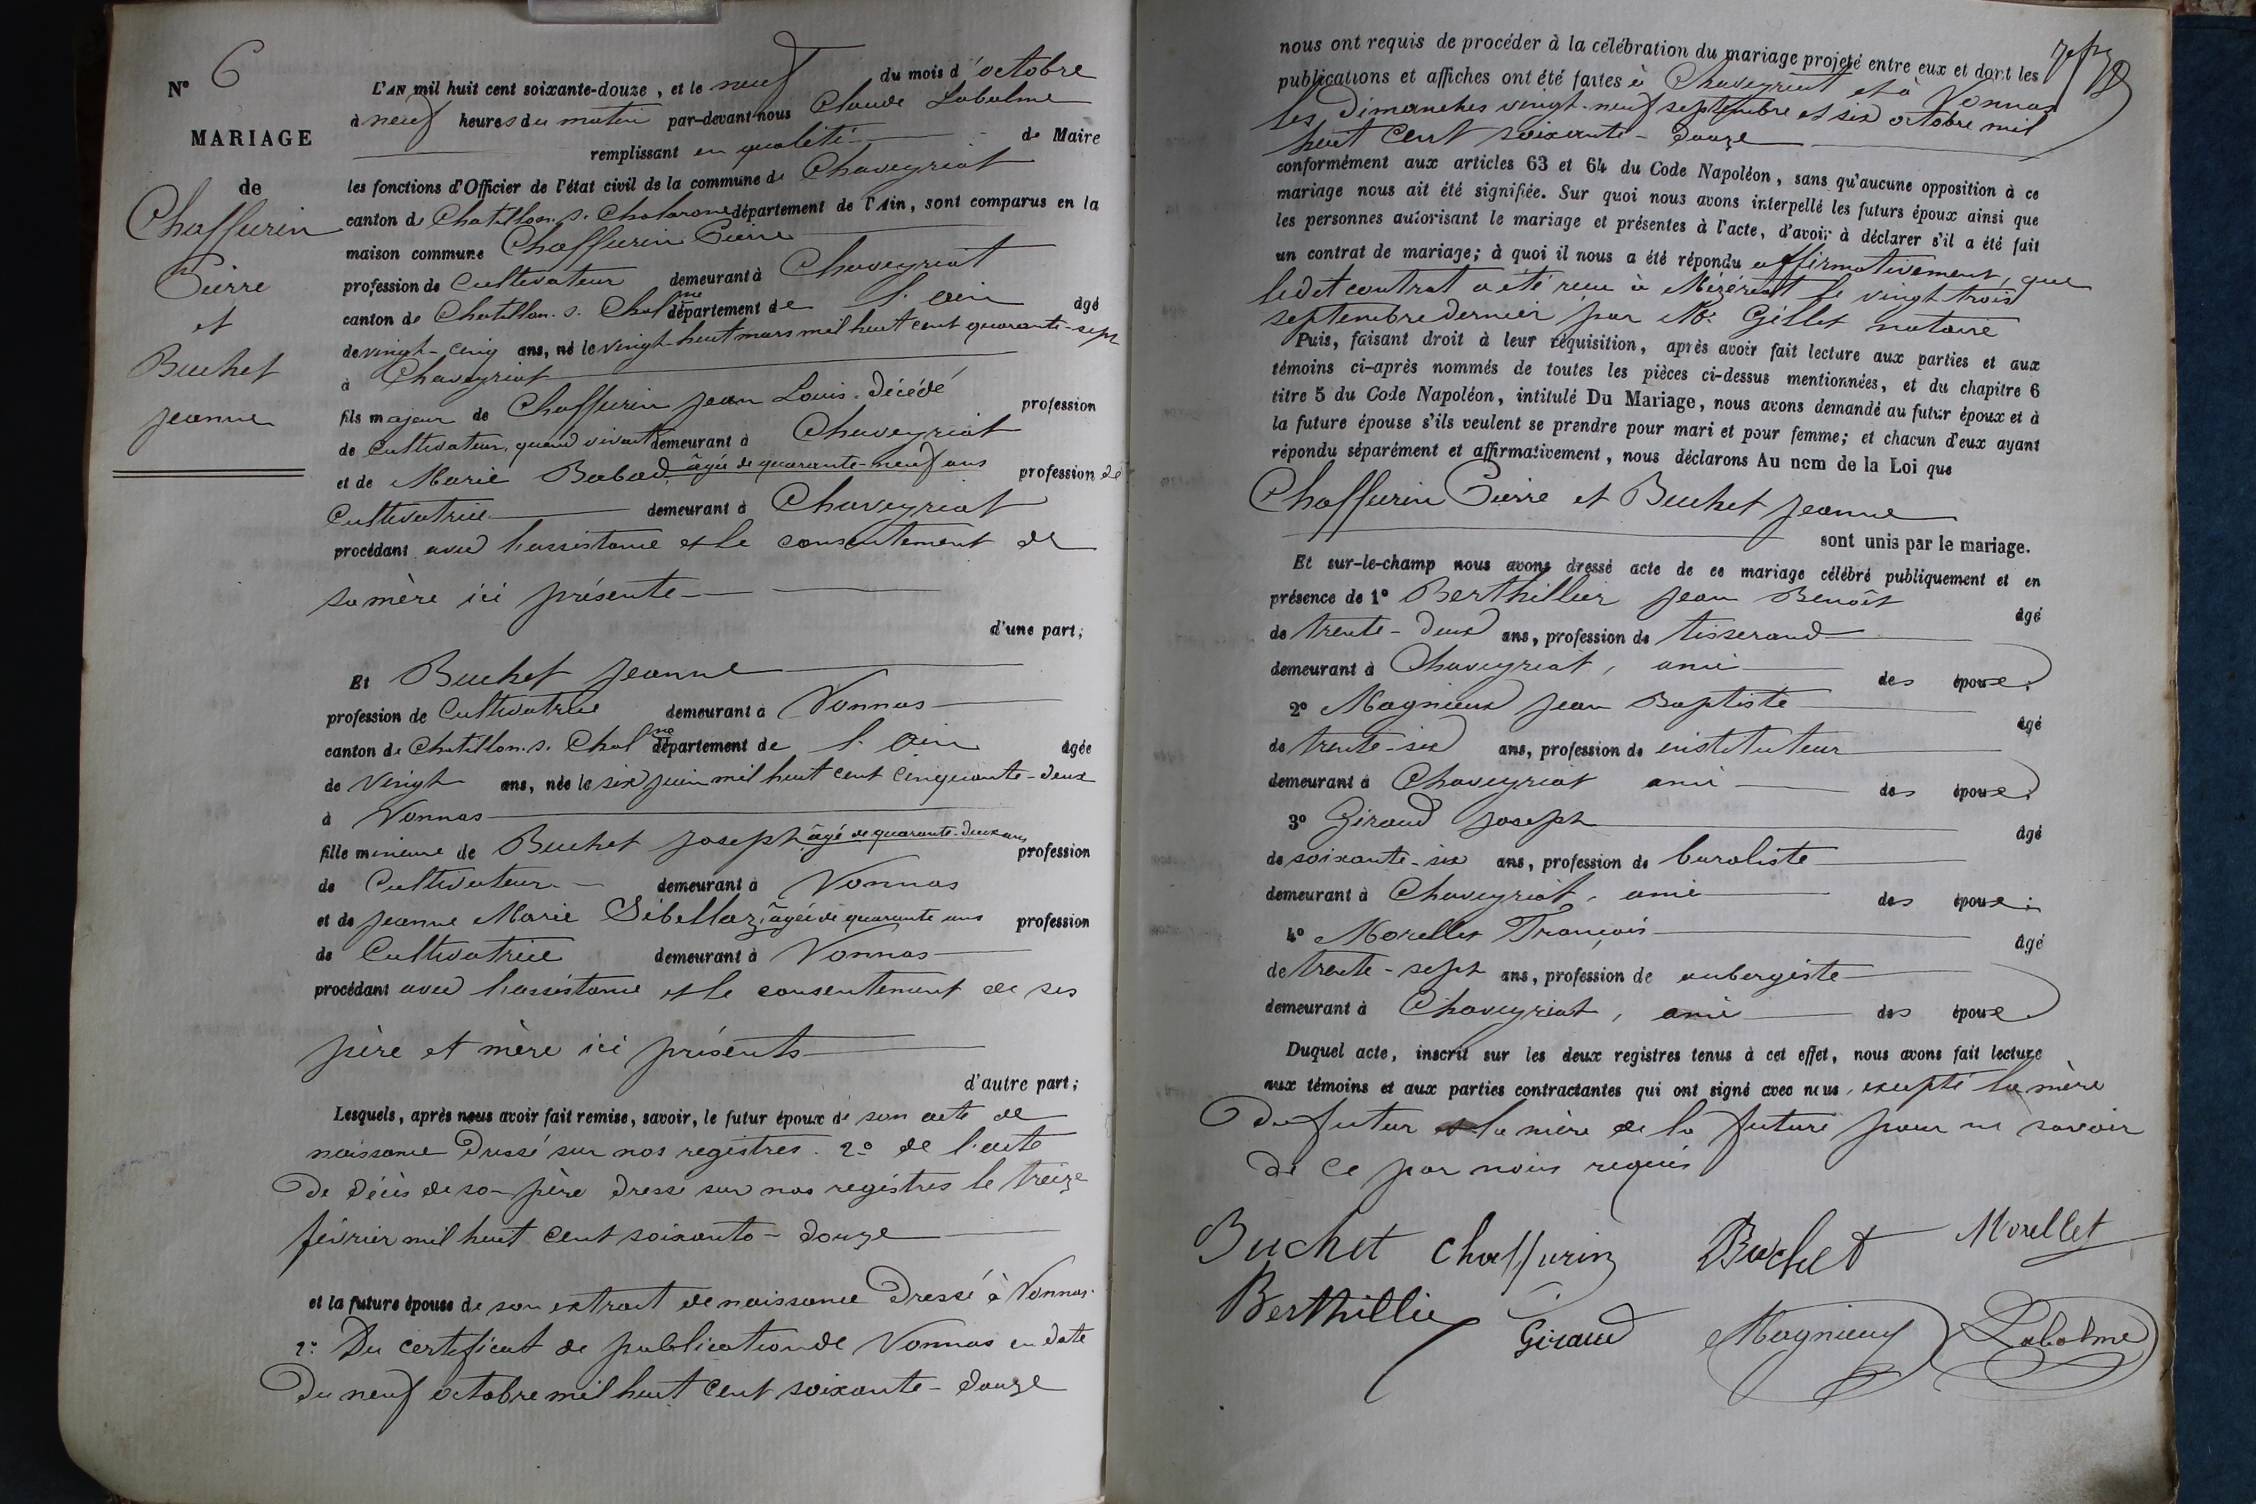 N° 6
MARIAGE
de
Chaffurin
Pierre
et
Buchet
Jeanne
L'AN mil huit cent soixante-douze, et le neuf du mois d'octobre
à neuf heures du matin par-devant nous Claude Labalme
remplissant en qualité de Maire
les fonctions d'Officier de l'état civil de la commune de Chaveyriat
canton de Chatillon. s. Chalaronne département de l'Ain, sont comparus en la
maison commune Chaffurin Pierre
profession de Cultivateur demeurant à Chaveyriat
canton de Chatillon. s. Chalne département de l'ain âgé
de vingt-cinq ans, né le vingt-huit mars mil huit cent quarante-sept
à Chaveyriat
fils majeur de Chaffurin Jean Louis. Décédé profession
de Cultivateur, quand vivant demeurant à Chaveyriat
et de Marie Babad, âgée de quarante-neuf ans profession de
Cultivatrice demeurant à Chaveyriat
procédant avec l'assistance et le consentement de
sa mère ici présente
d'une part;
Et Buchet Jeanne
profession de Cultivatrice demeurant à Vonnas
canton de Chatillon. s. Chalne département de l'ain âgée
de Vingt ans, née le six juin mil huit cent cinquante-deux
à Vonnas
fille mineure de Buchet Joseph, âgé de quarante-deux ans profession
de Cultivateur demeurant à Vonnas
et de Jeanne Marie Sibellaz, âgée de quarante ans profession
de Cultivatrice demeurant à Vonnas
procédant avec l'assistance et le consentement de ses
père et mère ici présents
d'autre part;
Lesquels, après nous avoir fait remise, savoir, le futur époux de son acte de
naissance Dressé sur nos registres. 2° de l'acte
De décès de son père dressé sur nos registres le treize
février mil huit cent soixante-douze
et la future épouse de son extrait de naissance Dressé à Vonnas.
2° Du certificat de publication de Vonnas en date
Du neuf octobre mil huit cent soixante-douze
nous ont requis de procéder à la célébration du mariage projeté entre eux et dont les
publications et affiches ont été faites à Chaveyriat et à Vonnas
les Dimanches vingt-neuf septembre et six octobre mil
huit cent soixante-douze
conformément aux articles 63 et 64 du Code Napoléon, sans qu'aucune opposition à ce
mariage nous ait été signifiée. Sur quoi nous avons interpellé les futurs époux ainsi que
les personnes autorisant le mariage et présentes à l'acte, d'avoir à déclarer s'il a été fait
un contrat de mariage; à quoi il nous a été répondu affirmativement, que
ledit contrat a été reçu à Mézériat le vingt trois
septembre dernier par Me Gillet notaire
Puis, faisant droit à leur réquisition, après avoir fait lecture aux parties et aux
témoins ci-après nommés de toutes les pièces ci-dessus mentionnées, et du chapitre 6
titre 5 du Code Napoléon, intitulé Du Mariage, nous avons demandé au futur époux et à
la future épouse s'ils veulent se prendre pour mari et pour femme; et chacun d'eux ayant
répondu séparément et affirmativement, nous déclarons Au nom de la Loi que
Chaffurin Pierre et Buchet Jeanne
sont unis par le mariage.
Et sur-le-champ nous avons dressé acte de ce mariage célébré publiquement et en
présence de 1° Berthillier Jean Benoît âgé
de trente-deux ans, profession de tisserand
demeurant à Chaveyriat, ami des époux;
2° Magnieux Jean Baptiste âgé
de trente-six ans, profession de instituteur
demeurant à Chaveyriat ami des époux;
3° Giraud Joseph âgé
de soixante-six ans, profession de buraliste
demeurant à Chaveyriat, ami des époux;
4° Morellet François âgé
de trente-sept ans, profession de aubergiste
demeurant à Chaveyriat, ami des époux.
Duquel acte, inscrit sur les deux registres tenus à cet effet, nous avons fait lecture
aux témoins et aux parties contractantes qui ont signé avec nous, excepté la mère
Du futur et la mère de la future pour ne savoir
de ce par nous requis
Buchet Chaffurin Buchet Morellet
Berthillier Giraud Magnieux Labalme